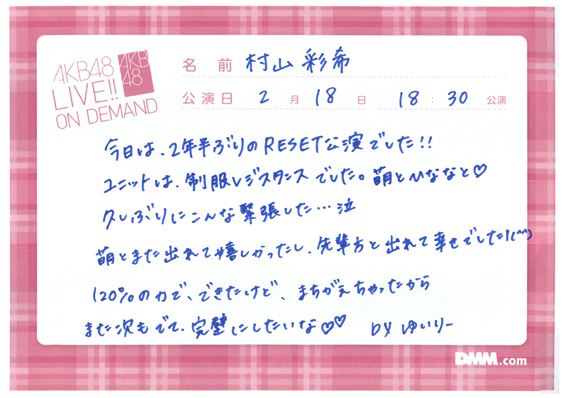 AKB48
LIVE!!
ON DEMAND
AKB
48
名 前 村山 彩希
公演日 2 月 18 日 18 : 30 公演
今日は、2年半ぶりのRESET公演でした!!
ユニットは、制服レジスタンスでした。萌とひななと♡
久しぶりにこんな緊張した…泣
萌とまた出れて嬉しかったし、先輩方と出れて幸せでした!(^^)
120%の力で、できたけど、まちがえちゃったから
また次もでて、完璧にしたいな♡♡ by ゆいりー
DMM.com